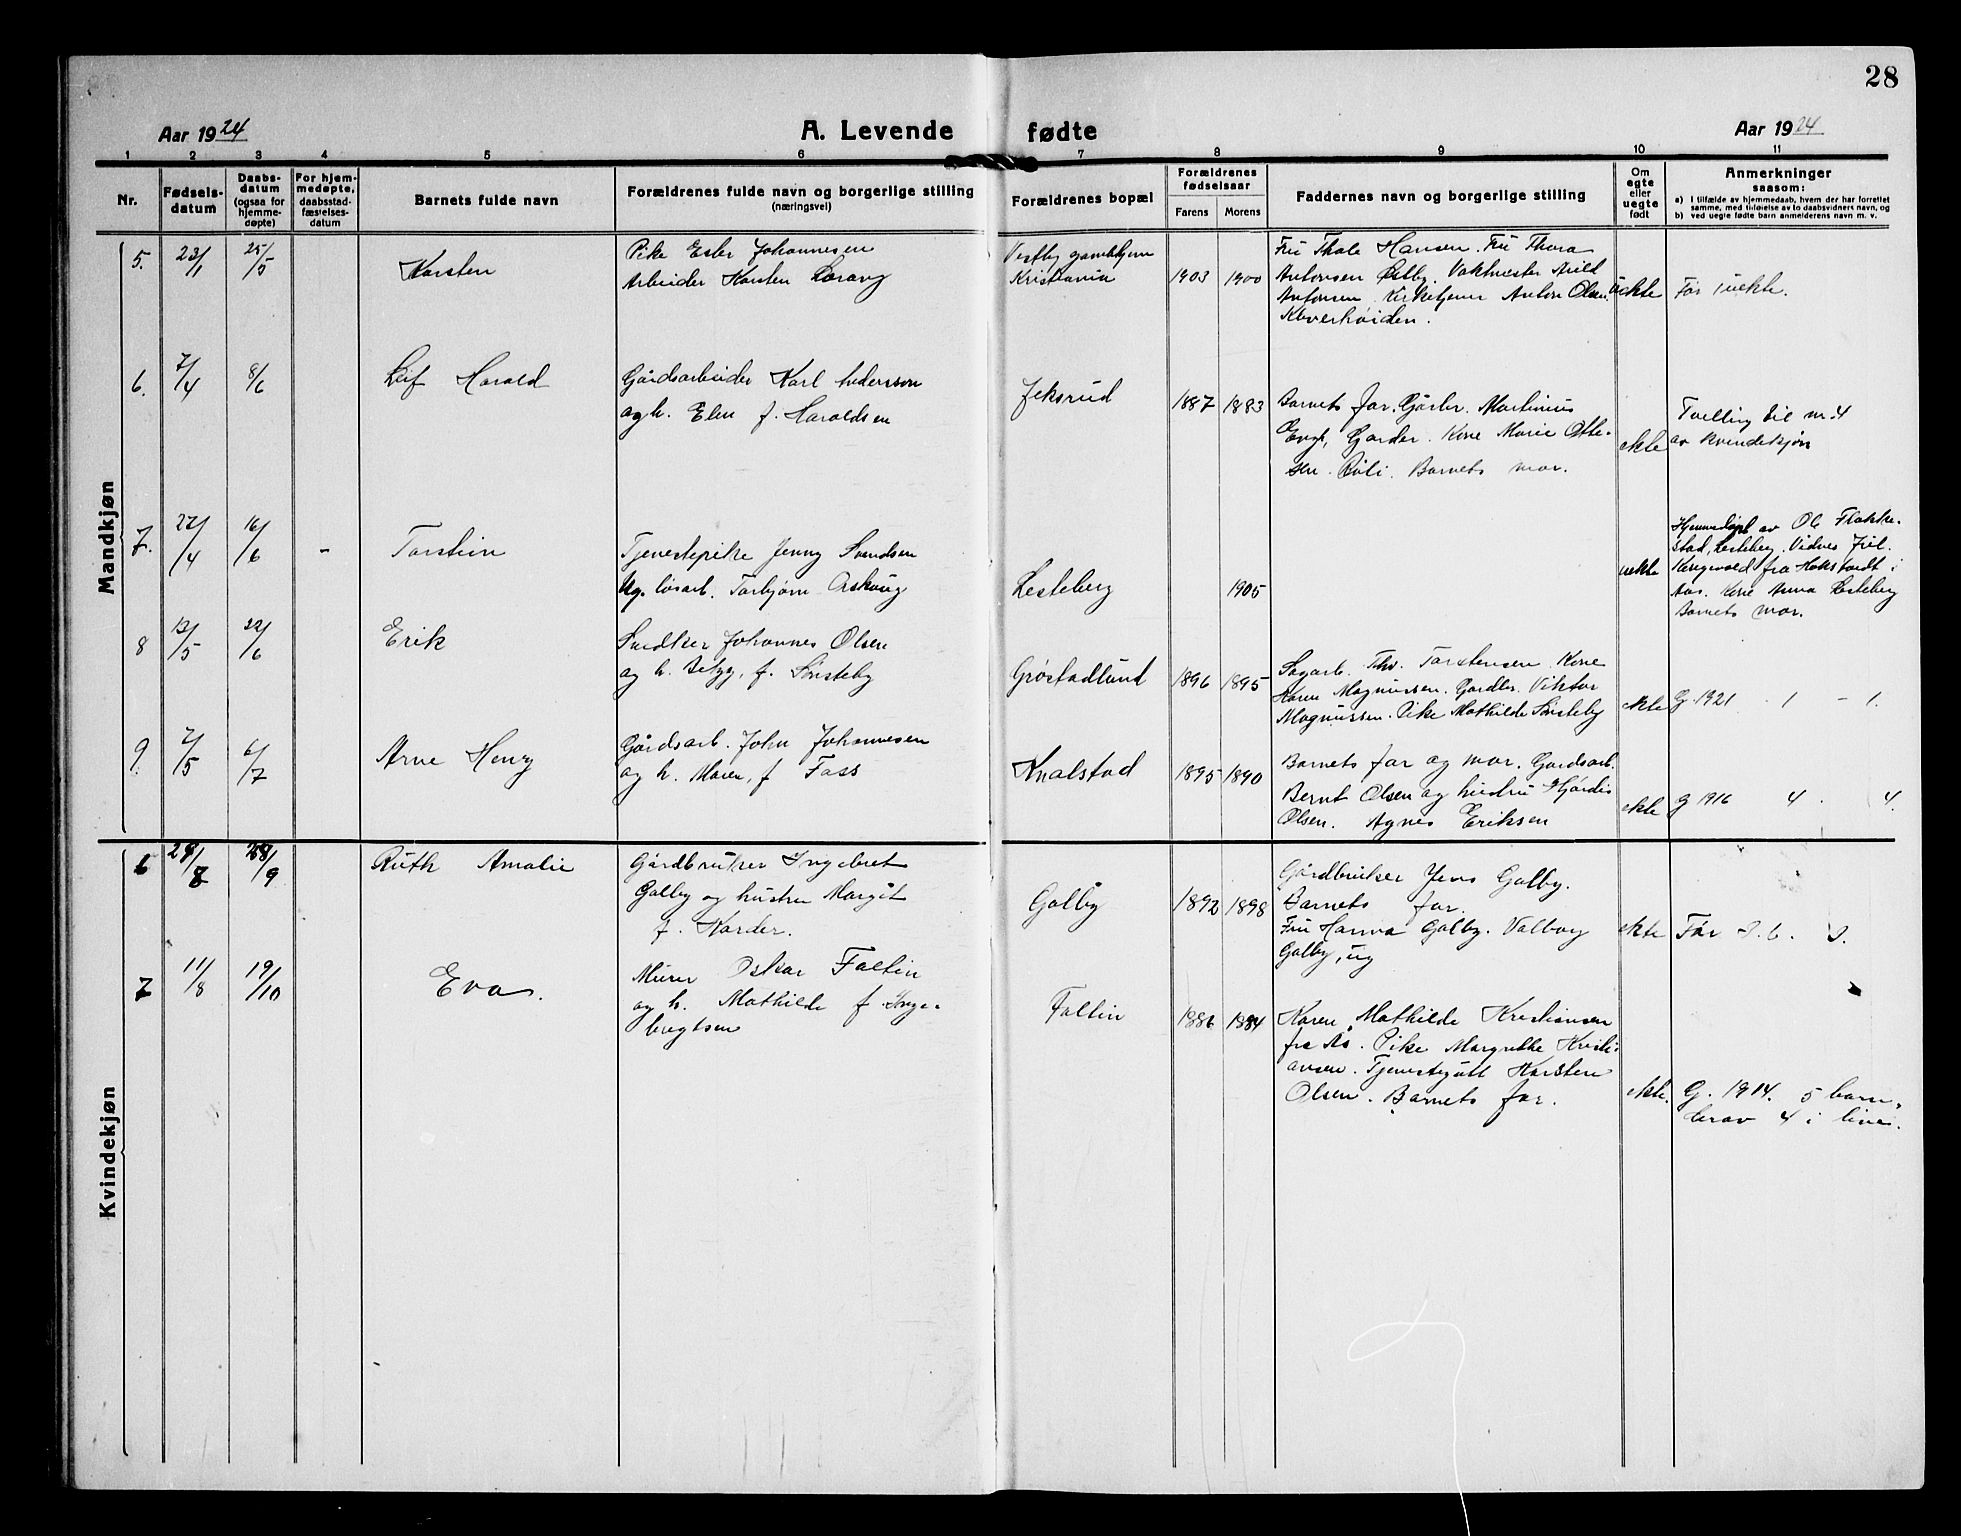 28
Aar 1924
A. Levende fødte
Aar 1924
1 2 3 4 5 6 7 8 9 10 11
Nr.
Fødsels-
datum
Daabs-
datum
(ogsaa for
hjemme-
døpte)
For hjem-
medøpte,
daabsstad-
fæstelses-
datum
Barnets fulde navn
Forældrenes fulde navn og borgerlige stilling
(næringsvei)
Forældrenes bopæl
Forældrenes
fødselsaar
Farens Morens
Faddernes navn og borgerlige stilling
Om
egte
eller
uegte
født
Anmerkninger
saasom:
a) I tilfælde av hjemmedaab, hvem der har forrettet
samme, med tilføielse av to daabsvidners navn, og
b) ved uegte fødte barn anmelderens navn m. v.
Mandkjøn
5. 23/1 25/5
Karsten
Pike Ester Johannesen
Arbeider Karsten
Vestby gamlehjem
Kristiania
1903 1900
Fru Thale Hansen. Fru Thora
Antonsen Østby. Vaktmester Arild
Antonsen. Kirketjener Anton Olsen,
Kleverhøiden.
uekte
Før 1 uekte.
6. 7/4 8/6
Leif Harald
Gårdsarbeider Karl Anderssen
og h. Elen f. Haraldsen
Jeksrud
1887 1883
Barnets far. Gårbr. Martinius
Garder. Kone Marie Otte-
sen. Røli. Barnets mor.
ekte
Tvelling til nr. 4
av kvindekjøn
7. 27/4 16/6 -
Torstein
Tjenestepike Jenny Svendsen
Ug. løsarb. Torbjørn Arskoug
Lesteberg
1905
uekte
Hjemmedøpt av Ole Flakke-
stad, Lesteberg. Vidner
fra i
Aas. Kone Anna Lesteberg
Barnets mor.
8 13/5 22/6
Erik
Snedker Johannes Olsen
og h. f. Sønsteby
Grøstadlund
1896 1895
Sagarb. Thv. Torstensen. Kone
Karen Magnussen. Gardbr. Viktor
Magnussen. Pike Mathilde Sønsteby
ekte
G 1921 1 - 1.
9. 7/5 6/7
Arne Henry
Gårdsarb. John Johannesen
og h. Maren, f Fass
Knalstad
1895 1890
Barnets far og mor. Gardsarb.
Bernt Olsen og hustru Hjørdis
Olsen. Agnes Eriksen
ekte
g 1916 4 . 4.
Kvindekjøn
6 29/8 28/9
Ruth Amalie
Gårdbruker Ingebret
Galby og hustru Margit
f. Korder.
Galby
1892 1898
Gårdbruker Jens Galby.
Barnets far.
Fru Hanna Galby. Valborg
Galby, ug
ekte
Før
7 11/8 19/10
Eva.
Murer Oskar Faltin
og h. Mathilde f. Inge-
brigtsen
Faltin
1886 1884
Karen Mathilde Kristiansen
fra Ås. Pike Margrethe Kristi-
ansen. Tjenestegutt Karsten
Olsen. Barnets far.
ekte.
G. 1914. 5 barn,
herav 4 i live.